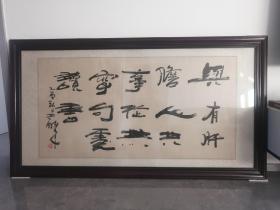 與有肝
膽人共
事從無
字句處
讀書
乙酉秋